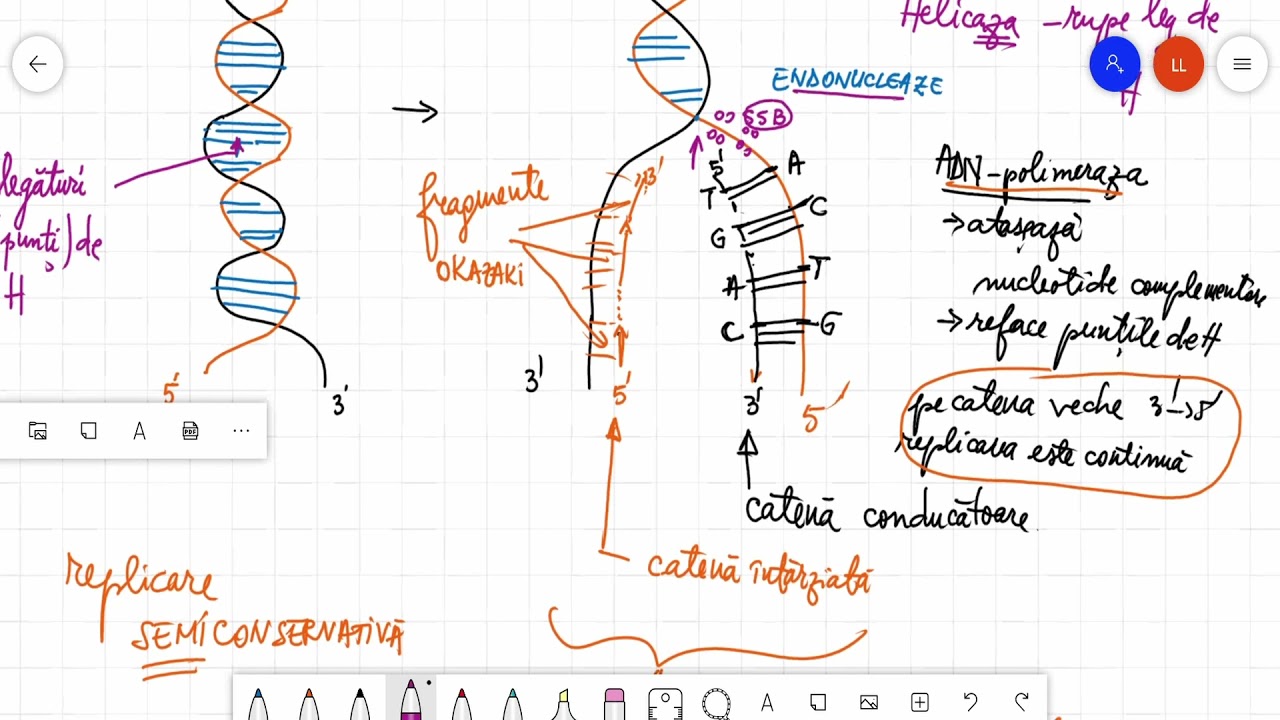 Helicaza – rupe leg de
H
LL
ENDONUCLEAZE
SSB
legături
(punți) de
H
fragmente
OKAZAKI
3'
5'
A
T
C
G
T
A
C
G
ADN-polimeraza
→ atașează
nucleotide complementare
→ reface punțile de H
5'
3'
3'
5'
3'
5'
pe catena veche 3'→5'
replicarea este continuă
catenă conducătoare
catenă întârziată
replicare
SEMICONSERVATIVĂ
PDF
A
A